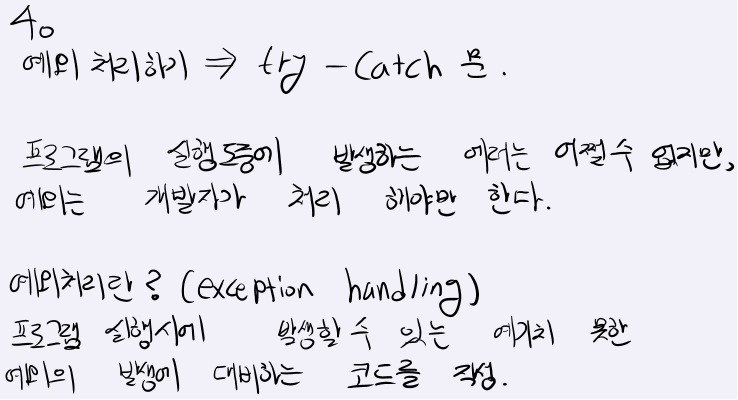 4.
예외 처리하기 ⇒ try - Catch 문.
프로그램의 실행도중에 발생하는 에러는 어쩔 수 없지만,
예외는 개발자가 처리 해야만 한다.
예외처리란? (exception handling)
프로그램 실행시에 발생할 수 있는 예기치 못한
예외의 발생에 대비하는 코드를 작성.